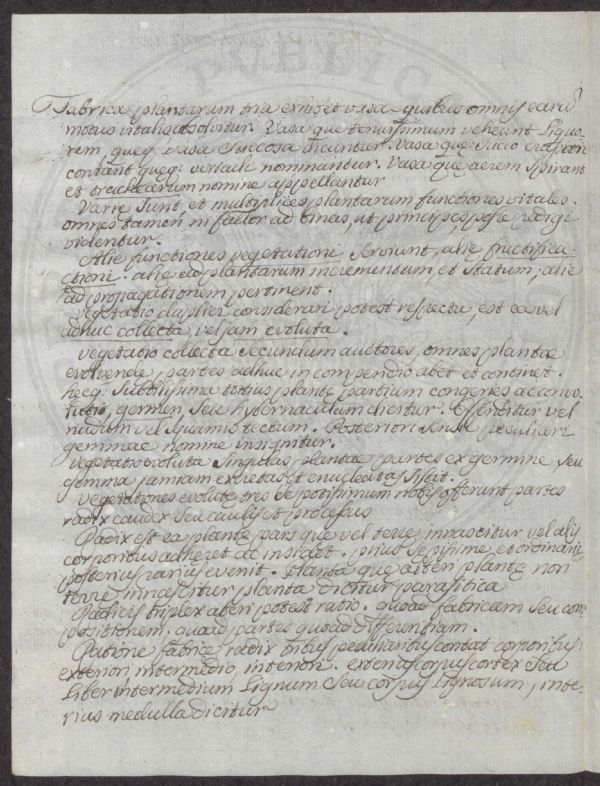 Fabrica plantarum tria exhibet vasa quibus omnis earū
motus vitalis absolvitur. Vasa que tenuissimum vehunt Liquo-
rem queq; vasa succosa dicuntur. Vasa que succo crassiore
contant queq; utriculi nominantur. Vasa que aerem spirant
et trachearum nomine appellantur
Varie sunt, et multiplices plantarum functiones vitales.
omnes tamen, ni fallor ad binas, ut principes, posse redigi
videntur.
Alie functiones vegetationi serviunt, alie fructifica-
ctioni. alie ad plantarum incrementum, et statum, alie
ad propagationem pertinent.
vegetatio duplici considerari potest respectu, est ea vel
adhuc collecta, vel jam evoluta.
vegetatio collecta secundum auctores, omnes plantae
evolvende, partes adhuc in compendio abet et continet.
hecq; subtilissima totius plante partium congeries ac convo-
lutio, germen, seu hybernaculum dicitur. Offenditur vel
nudum vel squamis tectum. Posteriori sensu peculiari
gemmae nomine insignitur.
vegetatio evoluta singulas plantae partes ex germine, seu
gemma jamjam excretas et enucleatas sistit.
vegetationes evolute tres se potissimum nobis offerunt partes
radix caudex seu caulis et processus
Radix est ea plante pars que vel terre innascitur vel aliis
corporibus adheret ac insidet. prius sepissime, et ordinarie
posterius rarius evenit. Planta que alteri plante non
terre innascitur planta dicitur parasitica
Radicis triplex aberi potest ratio. quoad fabricam seu com-
positionem. quoad partes quoad differentiam.
Ratione fabrice radix tribus peculiaribus contat corporibus
exteriori intermedio interiori. externus corpus cortex seu
Liber intermedium Lignum seu corpus Lignosum, inte-
rius medulla dicitur